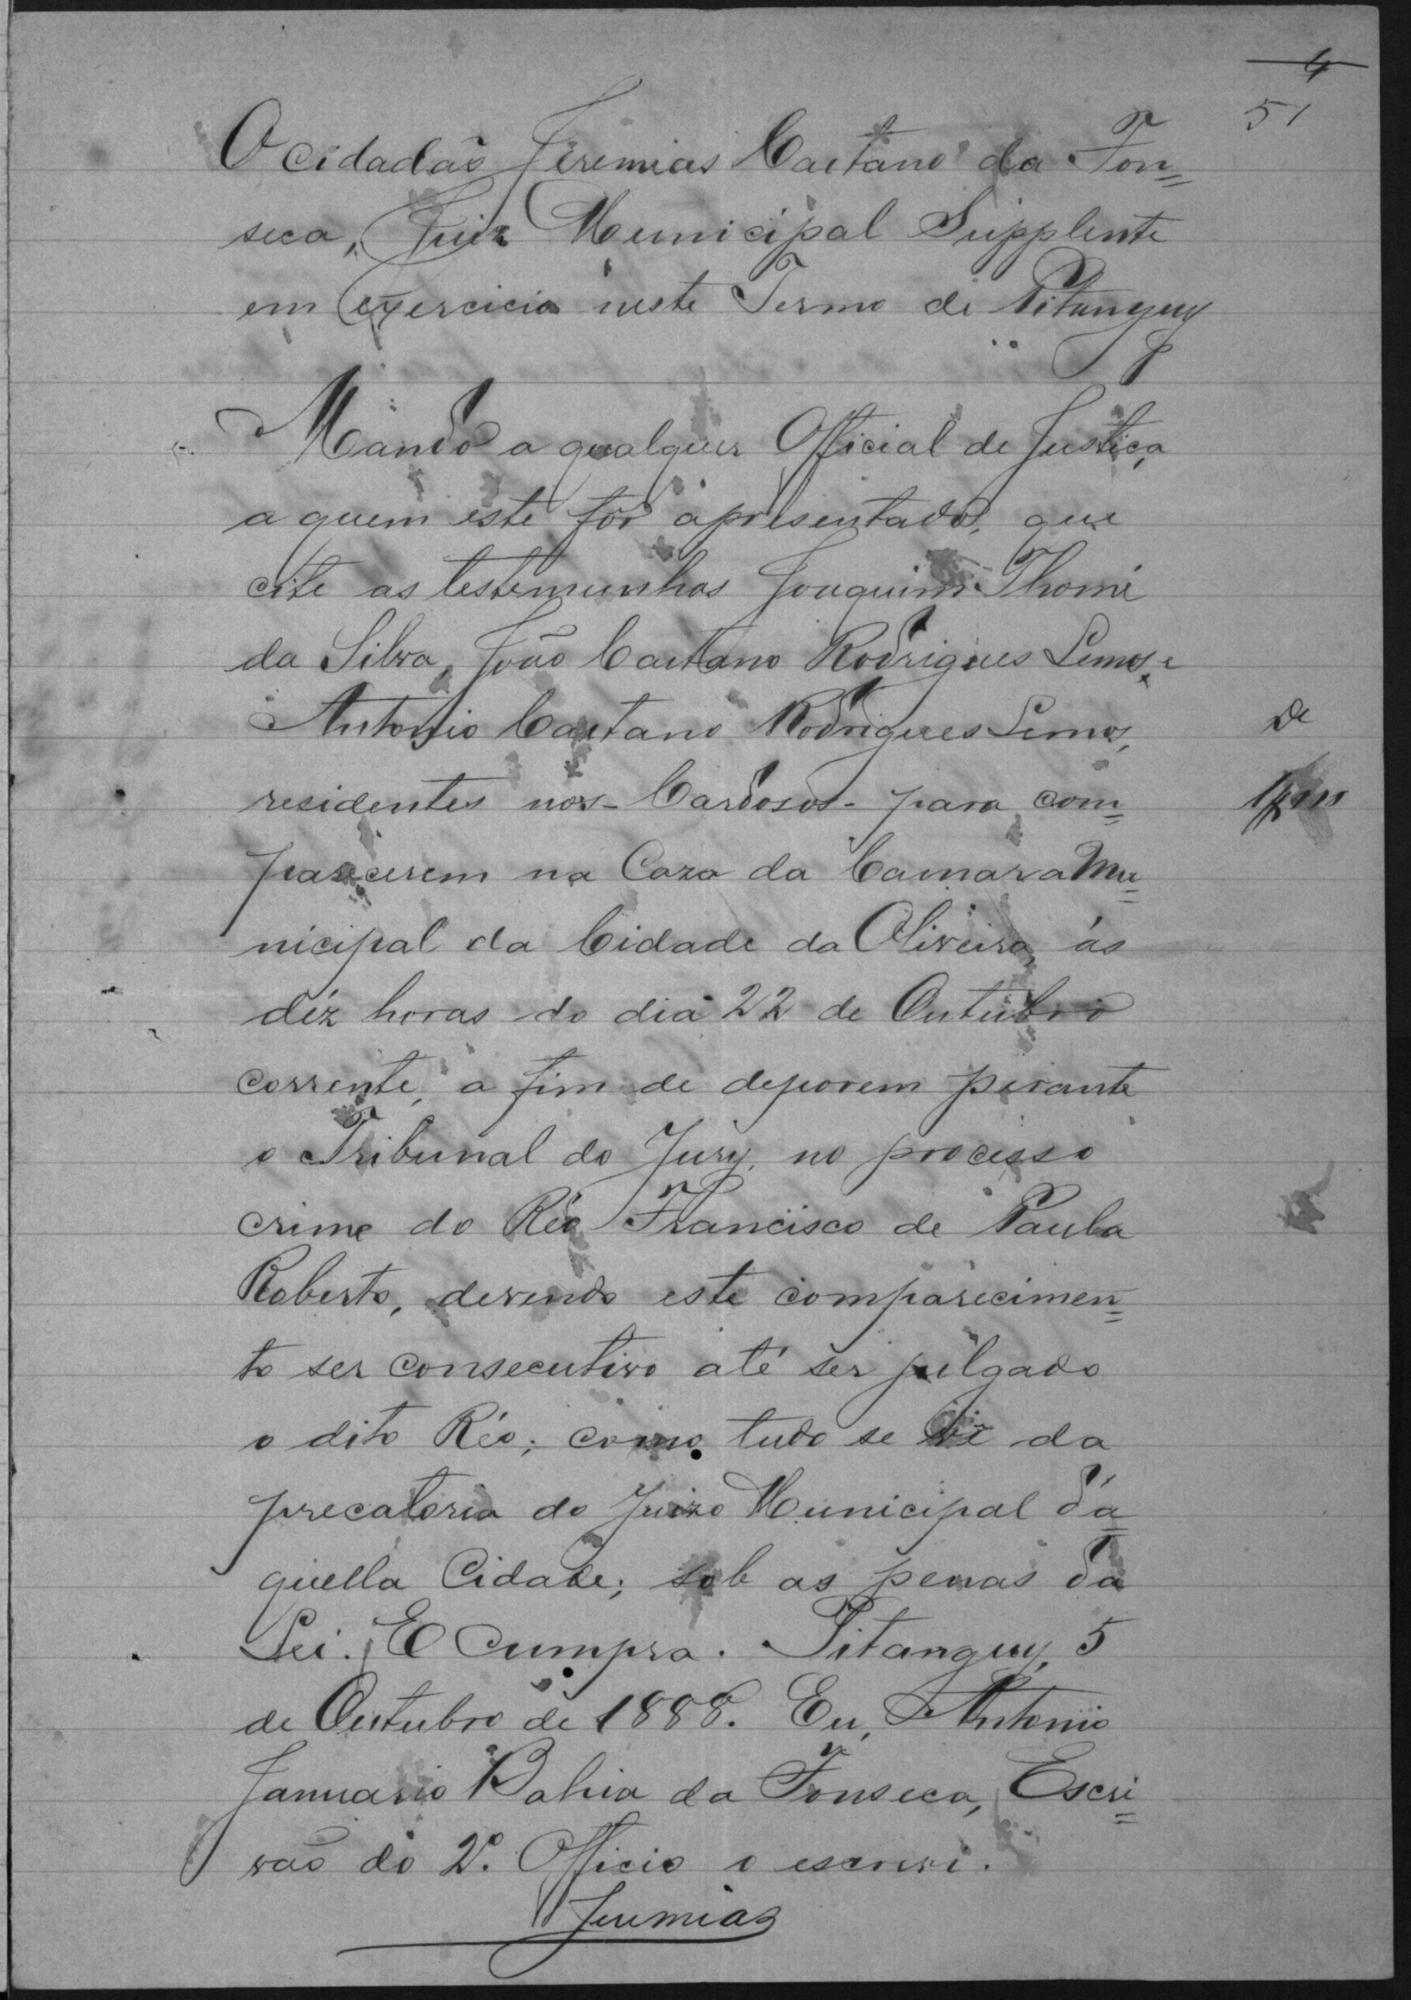 4
51
O cidadão Jeremias Caetano da Fon=
seca, Juiz Municipal Supplente
em exercicio neste Termo de Pitanguy
Mando a qualquer Official de Justiça,
a quem este fôr apresentado, que
cite as testemunhas Joaquim Thomé
da Silva, João Caetano Rodrigues Lemos, e
Antonio Caetano Rodrigues Lemos,
De
residentes nos - Cardosos - para com=
parecerem na Caza da Camara Mu=
nicipal da Cidade da Oliveira, ás
déz horas do dia 22 de Outubro
corrente, a fim de deporem perante
o Tribunal do Jury, no processo
crime do Réo Francisco de Paula
Roberto, devendo este comparecimen=
to ser consecutivo até ser julgado
o dito Réo; como tudo se vê da
precatoria do Juizo Municipal da=
quella Cidade; sob as penas da
Lei. E Cumpra. Pitanguy, 5
de Outubro de 1888. Eu, Antonio
Januario Bahia da Fonseca, Escri=
vão do 2º. Officio o escrevi.
Jeremias